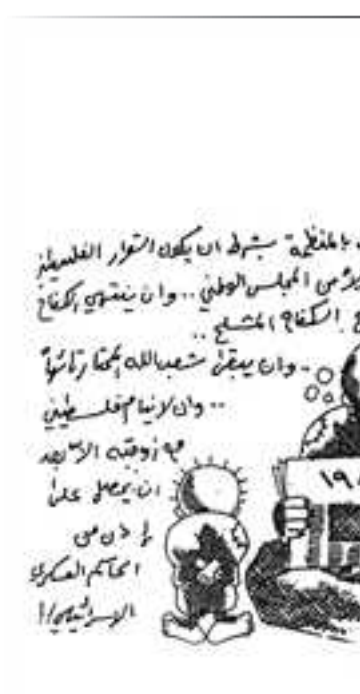 بالمنظمة بشرط ان يكون القرار الفلسطيني
من المجلس الوطني .. وان ينتهي الكفاح
الكفاح المسلح ..
.. وان يبقى شعب الله المختار تائهاً
.. وان لا ينام فلسطيني
مع زوجته الا بعد
ان يحصل على
إذن من
الحاكم العسكري
الاسرائيلي !
١٩٨